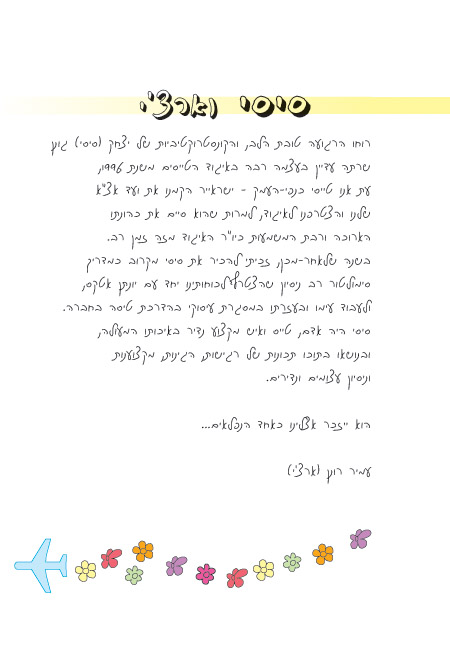 סיסי וארצ'י
רוחו הרגועה טובת הלב, והקונסטרוקטיביות של יצחק (סיסי) גונן
שרתה עדיין בעצמה רבה באיגוד הטייסים משנת 1996,
עת אנו טייסי כנפי-העמק - ישראייר הקמנו את ועד אצ"א
שלנו והצטרפנו לאיגוד, למרות שהוא סיים את כהונתו
הארוכה ורבת המשמעות כיו"ר האיגוד מזה זמן רב.
בשנה שלאחר-מכן, זכיתי להכיר את סיסי מקרוב כמדריך
סימולטור רב נסיון שהצטרף לכוחותינו יחד עם יונתן אטקס,
ולעבוד עימו ובעזרתו במסגרת עיסוקי בהדרכת טיסה בחברה.
סיסי היה אדם, טייס ואיש מקצוע נדיר באיכותו המעולה,
ובנושאו בתוכו תכונות של רגישות, הגינות, מקצוענות
ונסיון עצומים ונדירים.
הוא ייזכר אצלינו כאחד הנפלאים...
עמיר רונן (ארצ'י)